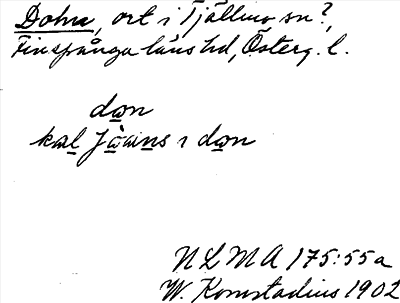 Dohn, ort i Tjällmo sn?,
Finspånga läns hd, Österg. l.
dɷn
kal Jɷans ı dɷn
NLMA 175:55a
W. Kornstadius 1902